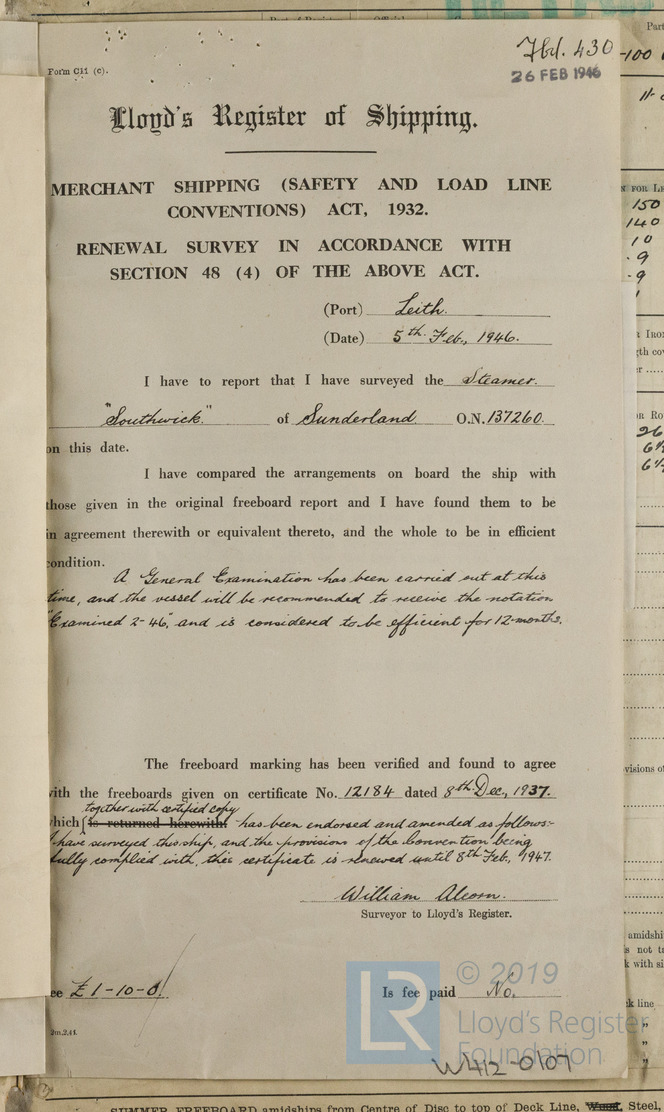 Fbd. 430
26 FEB 1946
Form C11 (c).
Lloyd's Register of Shipping.
MERCHANT SHIPPING (SAFETY AND LOAD LINE
CONVENTIONS) ACT, 1932.
RENEWAL SURVEY IN ACCORDANCE WITH
SECTION 48 (4) OF THE ABOVE ACT.
(Port) Leith.
(Date) 5th Feb., 1946.
I have to report that I have surveyed the Steamer.
"Southwick." of Sunderland O.N. 137260.
on this date.
I have compared the arrangements on board the ship with
those given in the original freeboard report and I have found them to be
in agreement therewith or equivalent thereto, and the whole to be in efficient
condition.
A General Examination has been carried out at this
time, and the vessel will be recommended to receive the notation
"Examined 2-46", and is considered to be efficient for 12 months.
The freeboard marking has been verified and found to agree
with the freeboards given on certificate No. 12184 dated 8th Dec., 1937.
together with certified copy
which is returned herewith. has been endorsed and amended as follows:-
I have surveyed this ship, and the provisions of the Convention being
fully complied with, this certificate is renewed until 8th Feb., 1947.
William Alcorn.
Surveyor to Lloyd's Register.
ee £1-10-0/ Is fee paid No.
2m.2.41.
LR
© 2019
Lloyd's Register
Foundation
W412-0107
SUMMER FREEBOARD amidships from Centre of Disc to top of Deck Line, Wood, Steel,
Part
-100
N FOR LE
150
140
10
.9
.9
r IRON
gth cov
er .....
OR RO
26
6½
6½
visions of
amidshi
s not t
k with si
ck line
"
"
"